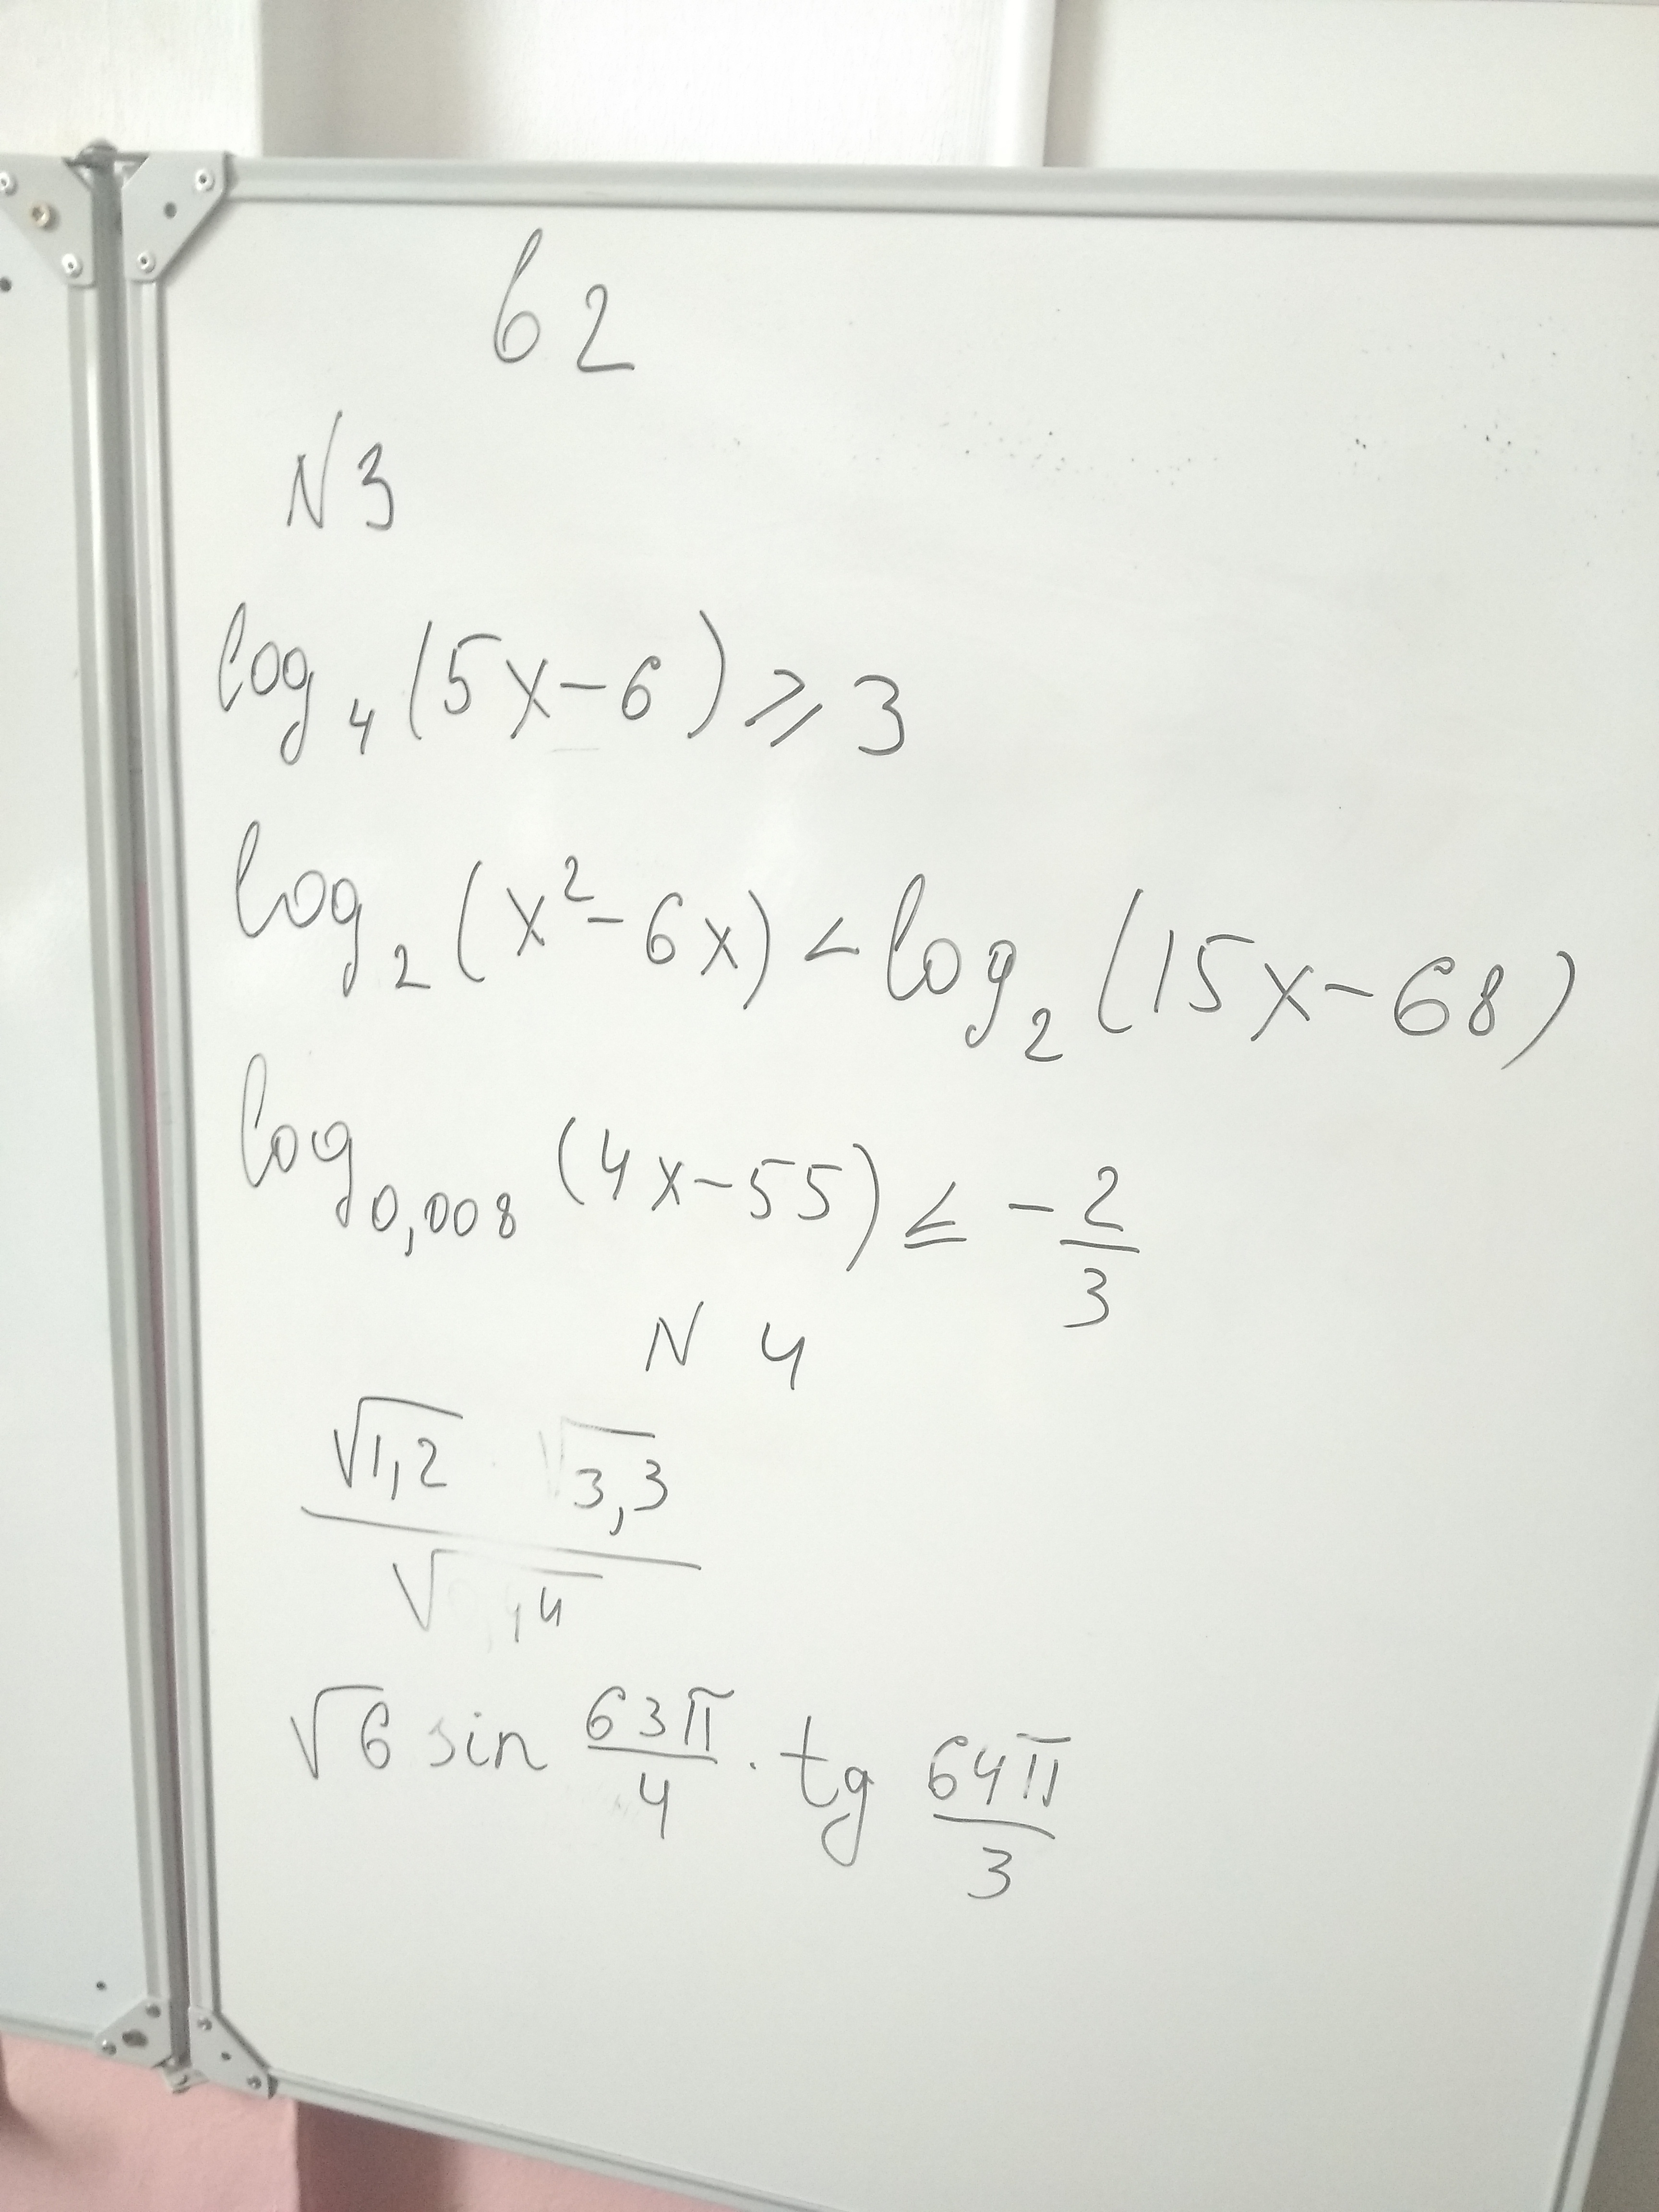 в 2
N3
log₄(5x-6)⩾3
log₂(x²-6x)<log₂(15x-68)
log₀,₀₀₈(4x-55)≤-2/3
N 4
√1,2 √3,3
√ ,44
√6 sin 63π/4 · tg 64π/3